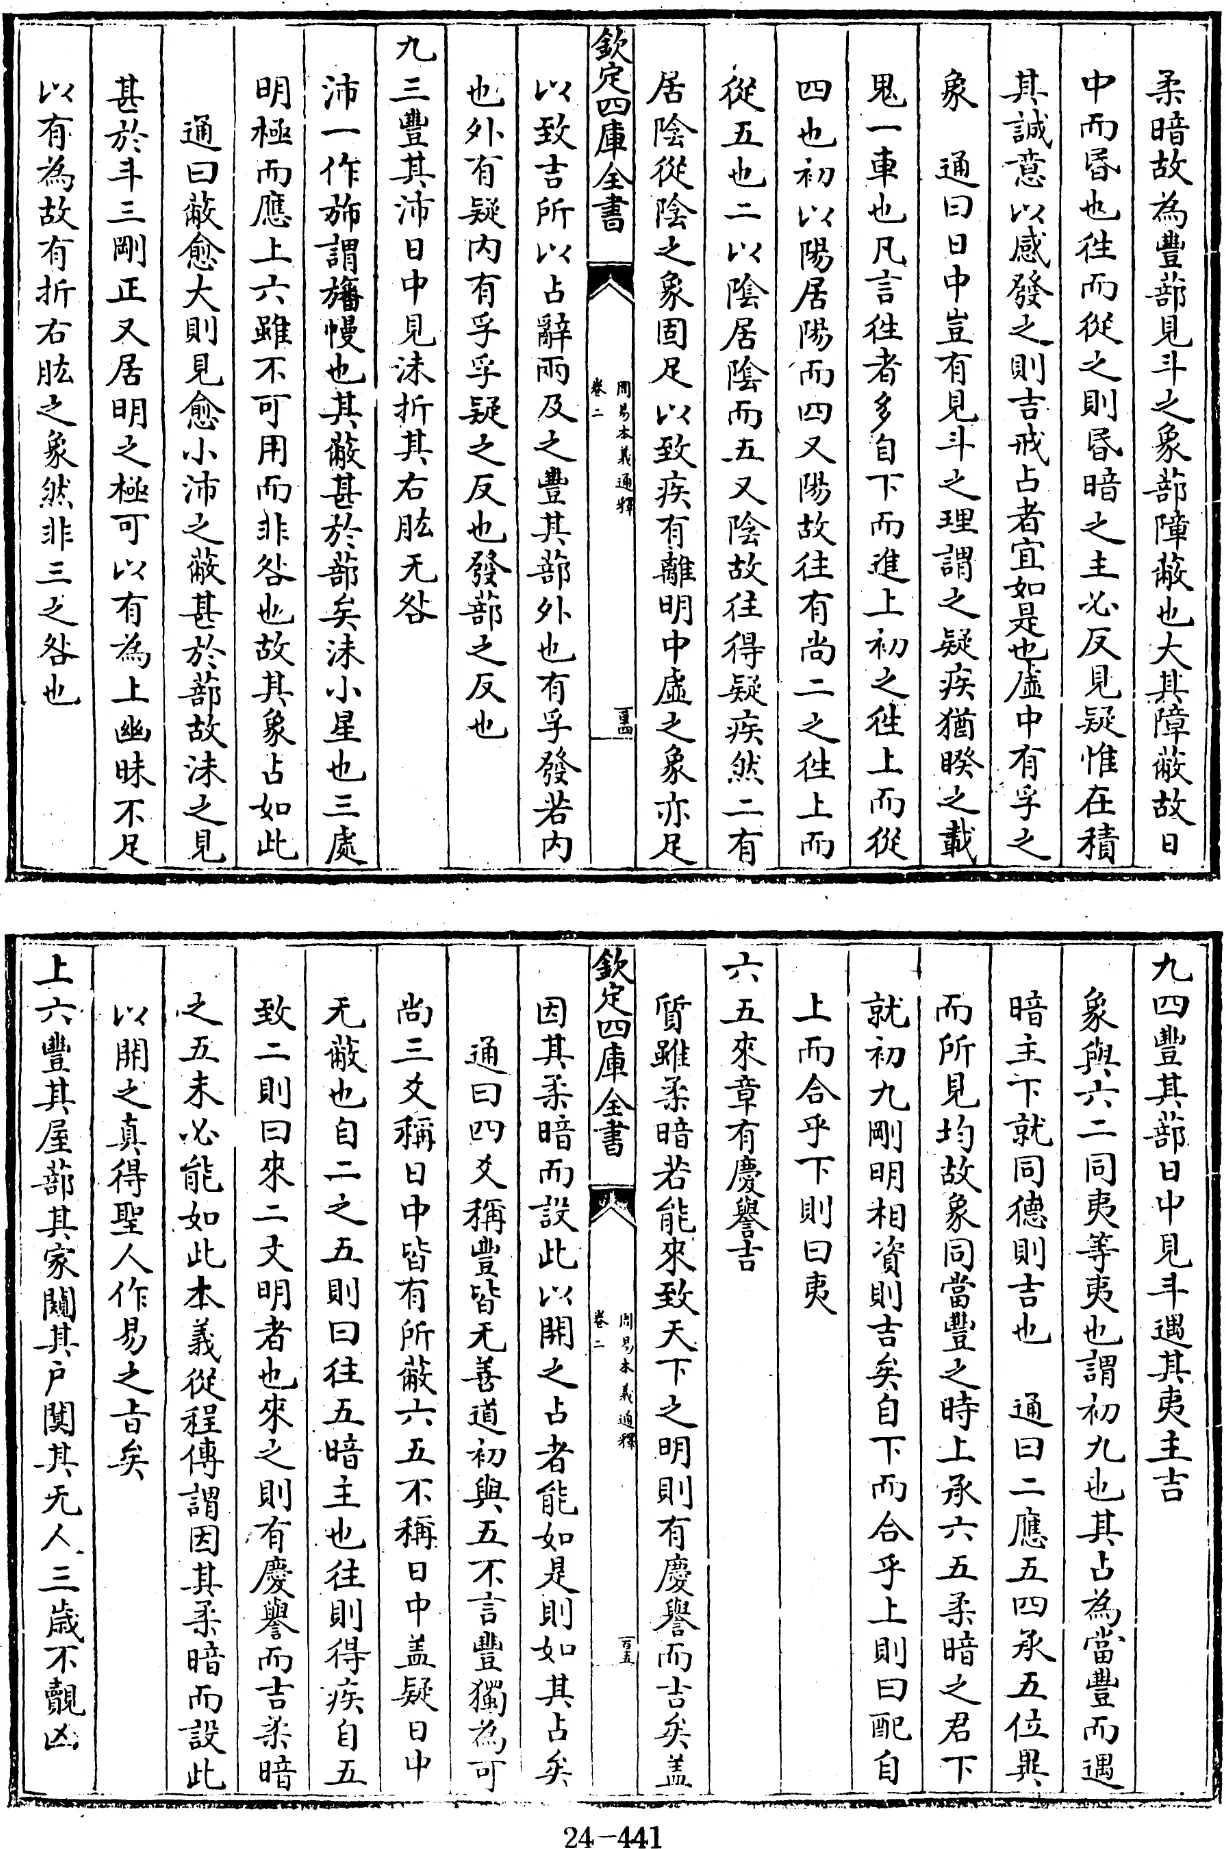 柔暗故為豐蔀見斗之象蔀障蔽也大其障蔽故日
中而昏也徃而從之則昏暗之主必反見疑惟在積
其誠意以感發之則吉戒占者宜如是也虛中有孚之
象　通曰日中豈有見斗之理謂之疑疾猶睽之載
鬼一車也凡言徃者多自下而進上初之徃上而從
四也初以陽居陽而四又陽故往有尚二之徃上而
從五也二以陰居陰而五又陰故往得疑疾然二有
居陰從陰之象固足以致疾有離明中虛之象亦足
欽定四庫全書
周易本義通釋
卷二
百四
以致吉所以占辭兩及之豐其蔀外也有孚發若内
也外有疑内有孚孚疑之反也發蔀之反也
九三豐其沛日中見沬折其右肱无咎
沛一作斾謂旛幔也其蔽甚於蔀矣沬小星也三處
明極而應上六雖不可用而非咎也故其象占如此
通曰蔽愈大則見愈小沛之蔽甚於蔀故沬之見
甚於斗三剛正又居明之極可以有為上幽昧不足
以有為故有折右肱之象然非三之咎也
九四豐其蔀日中見斗遇其夷主吉
象與六二同夷等夷也謂初九也其占為當豐而遇
暗主下就同德則吉也　通曰二應五四承五位異
而所見均故象同當豐之時上承六五柔暗之君下
就初九剛明相資則吉矣自下而合乎上則曰配自
上而合乎下則曰夷
六五來章有慶譽吉
質雖柔暗若能來致天下之明則有慶譽而吉矣蓋
欽定四庫全書
周易本義通釋
卷二
百五
因其柔暗而設此以開之占者能如是則如其占矣
通曰四爻稱豐皆无善道初與五不言豐獨為可
尚三爻稱日中皆有所蔽六五不稱日中盖疑日中
无蔽也自二之五則曰往五暗主也往則得疾自五
致二則曰來二文明者也來之則有慶譽而吉柔暗
之五未必能如此本義從程傳謂因其柔暗而設此
以開之真得聖人作易之旨矣
上六豐其屋蔀其家闚其戶闃其无人三歲不覿凶
24-441